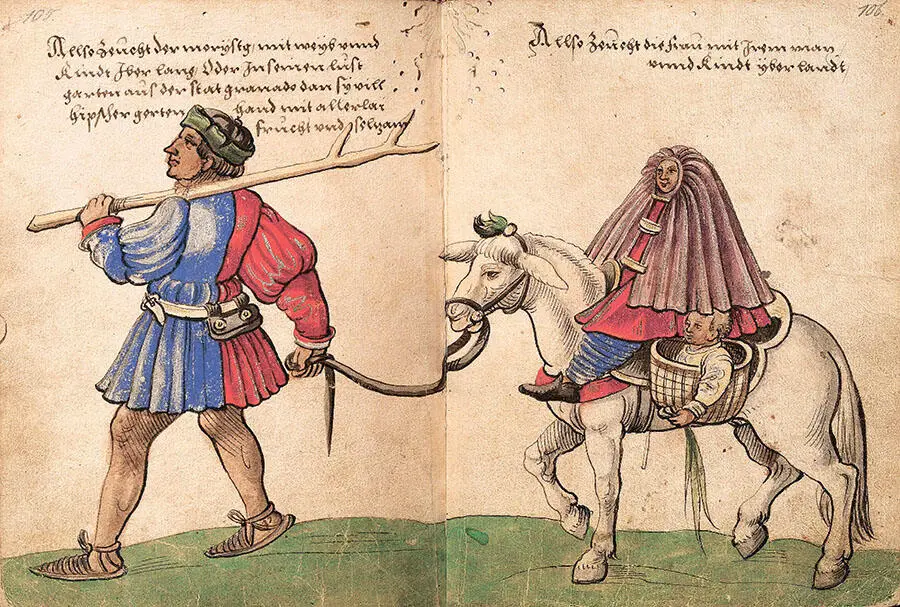 105.
Allso Zeucht der morystg mit weyb vnnd
Kindt Jber lang Oder Jn seinen lust
garten aus der stat granado dan sy vill
hipscher gerten hand mit allerlai
frucht vnd selzam
106.
Allso Zeucht die frau mit Jrem man
vnnd Kindt yber landt